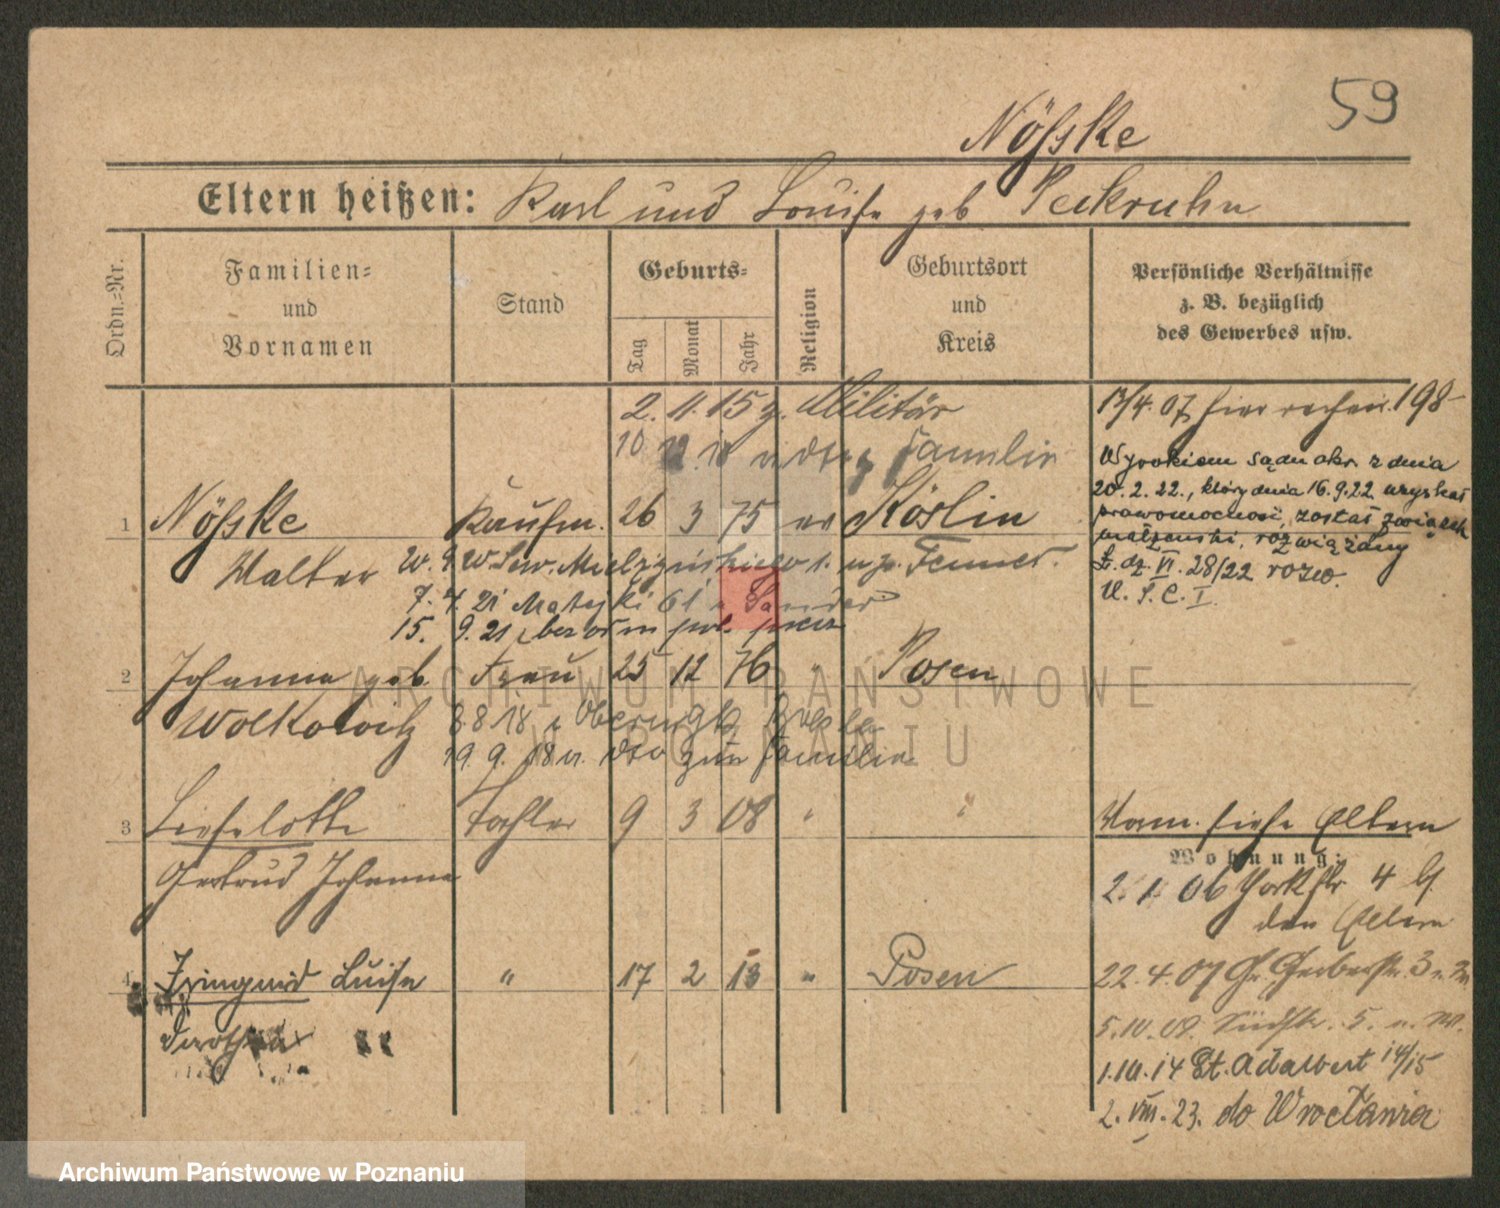 59
Nößke
Eltern heißen: Karl und Louise geb Peckruhn
Ordn.=Nr.
Familien=
und
Vornamen
Stand
Geburts=
Tag
Monat
Jahr
Religion
Geburtsort
und
Kreis
Persönliche Verhältnisse
z. B. bezüglich
des Gewerbes usw.
2. 11. 15 z. Militär
13/4. 07 hier 198
10 Familie
Wyrokiem sądu okr. z dnia
20. 2. 22., który dnia 16.9.22 uzyskał
1 Nößke Kaufm. 26 3 75 ev Köslin
prawomocność, został związek
małżeński, rozwiązany
Walter
L. dz. VI. 28/22 rozw.
U. S. C. I.
7. 7. 21 Matejki 61 Sander
15. 9. 21
2 Johanna geb. Frau 25 12 76 " Posen
Wolkowitz 8 8 18
19. 9. 18 zur Familie
3 Lieselotte Tochter 9 3 08 " "
Verm. siehe Eltern
Wohnung:
Gertrud Johanna
2. 1. 06 Yorkstr 4 b
den Eltern
4 Irmgard Luise " 17 2 13 " Posen
22. 4. 07 Gr. Gerberstr. 3
Dorothea
5.10.09.
1.10.14 St. Adalbert 14/15
2. VIII. 23. do Wrocławia
ARCHIWUM PAŃSTWOWE
W POZNANIU
Archiwum Państwowe w Poznaniu